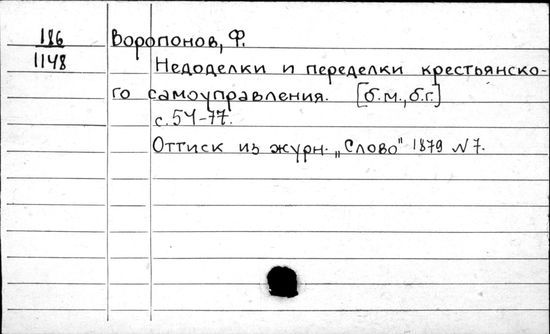 186 Воропонов, Ф.
1148 Недоделки и переделки крестьянско-
го самоуправления. [б.м., б.г.]
с. 54-77.
Оттиск из журн. „Слово" 1879 N 7.